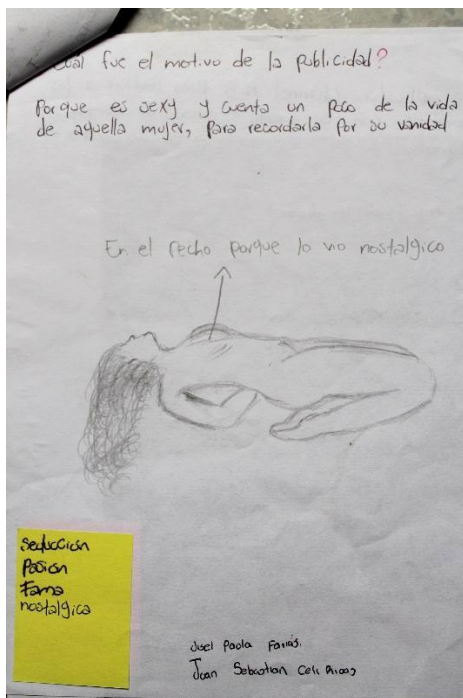 Cuál fue el motivo de la publicidad?
Porque es sexy y cuenta un poco de la vida
de aquella mujer, para recordarla por su vanidad
En el pecho porque lo vio nostalgico
seducción
Pasion
Fama
nostalgica
Paola Farias
Juan Sebastian